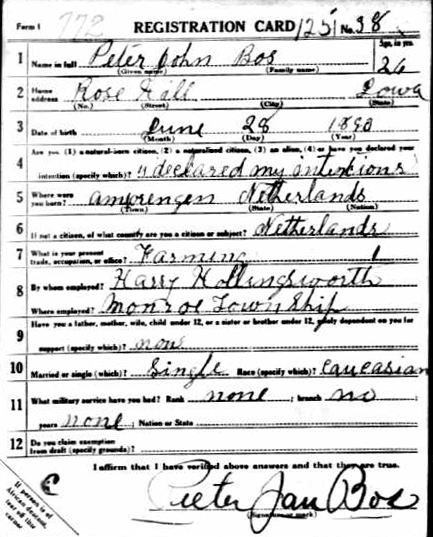 Form 1 772 REGISTRATION CARD 125 No. 38
1 Name in full Peter John Bos Age, in yrs. 26
(Given name) (Family name)
2 Home address Rose Hill Iowa
(No.) (Street) (City) (State)
3 Date of birth June 28 1890
(Month) (Day) (Year)
4 Are you (1) a natural-born citizen, (2) a naturalized citizen, (3) an alien, (4) or have you declared your
intention (specify which)? 4 declared my intentions
5 Where were you born? Netherlands
(Town) (State) (Nation)
6 If not a citizen, of what country are you a citizen or subject? Netherlands
7 What is your present trade, occupation, or office? Farming 1
8 By whom employed? Harry Hollingsworth
Where employed? Monroe Township
9 Have you a father, mother, wife, child under 12, or a sister or brother under 12, solely dependent on you for
support (specify which)? none
10 Married or single (which)? Single Race (specify which)? Caucasian
11 What military service have you had? Rank none ; branch no
years none ; Nation or State
12 Do you claim exemption from draft (specify grounds)?
I affirm that I have verified above answers and that they are true.
Pieter Jan Bos
(Signature or mark)
If person is of
African descent,
tear off this
corner